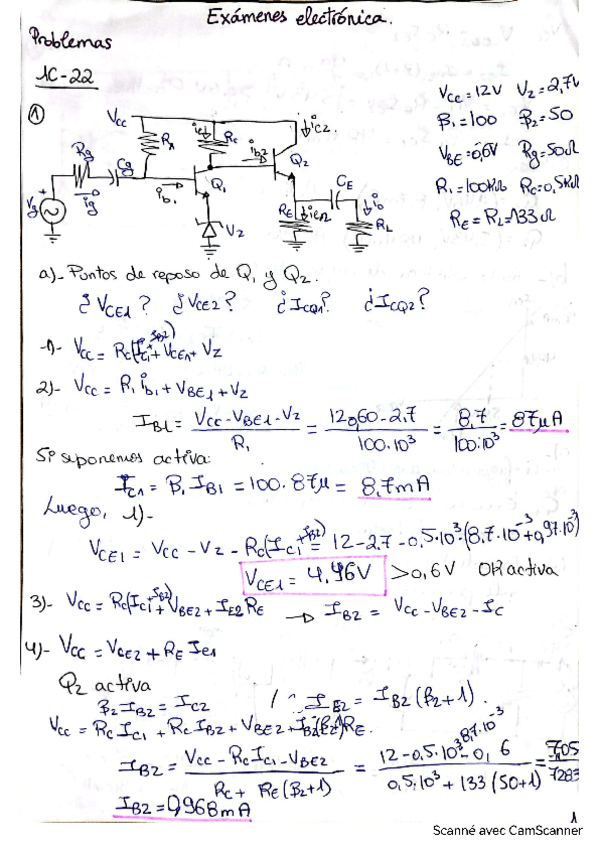 Exámenes electrónica.
Problemas
1C-22
①
Vcc
Rg
Cg
R1
ic1
Rc
ib2
ic2
Q2
Q1
ib1
ig
Vg
Vz
RE
ie2
CE
io
RL
Vcc = 12V Vz = 2,7V
β1 = 100 β2 = 50
VBE = 0,6V Rg = 50Ω
R1 = 100KΩ Rc = 0,5K
RE = RL = 133Ω
a)- Puntos de reposo de Q1 y Q2.
¿VCE1? ¿VCE2? ¿ICQ1? ¿ICQ2?
1)- Vcc = Rc(Ic1 + IB2) + VCE1 + Vz
2)- Vcc = R1 ib1 + VBE1 + Vz
IB1 = (Vcc - VBE1 - Vz) / R1 = (12-0,60-2,7) / 100·10³ = 8,7 / 100·10³ = 87μA
Si suponemos activa:
IC1 = β1 IB1 = 100·87μ = 8,7mA
Luego, 1)-
VCE1 = Vcc - Vz - Rc(Ic1 + IB2) = 12-2,7-0,5·10³·(8,7·10⁻³+0,97·10⁻³)
VCE1 = 4,46V > 0,6V OK activa
3)- Vcc = Rc(Ic1 + IB2) + VBE2 + IE2 RE → IB2 = Vcc - VBE2 - Ic
4)- Vcc = VCE2 + RE Ie1
Q2 activa
β2 IB2 = IC2 / IE2 = IB2 (β2+1).
Vcc = Rc Ic1 + Rc IB2 + VBE2 + IB2(β2+1)RE.
IB2 = (Vcc - Rc Ic1 - VBE2) / (Rc + RE(β2+1)) = (12-0,5·10³·87·10⁻³-0,6) / (0,5·10³+133(50+1)) = 705 / 7283
IB2 = 0,968mA
1
Scanné avec CamScanner